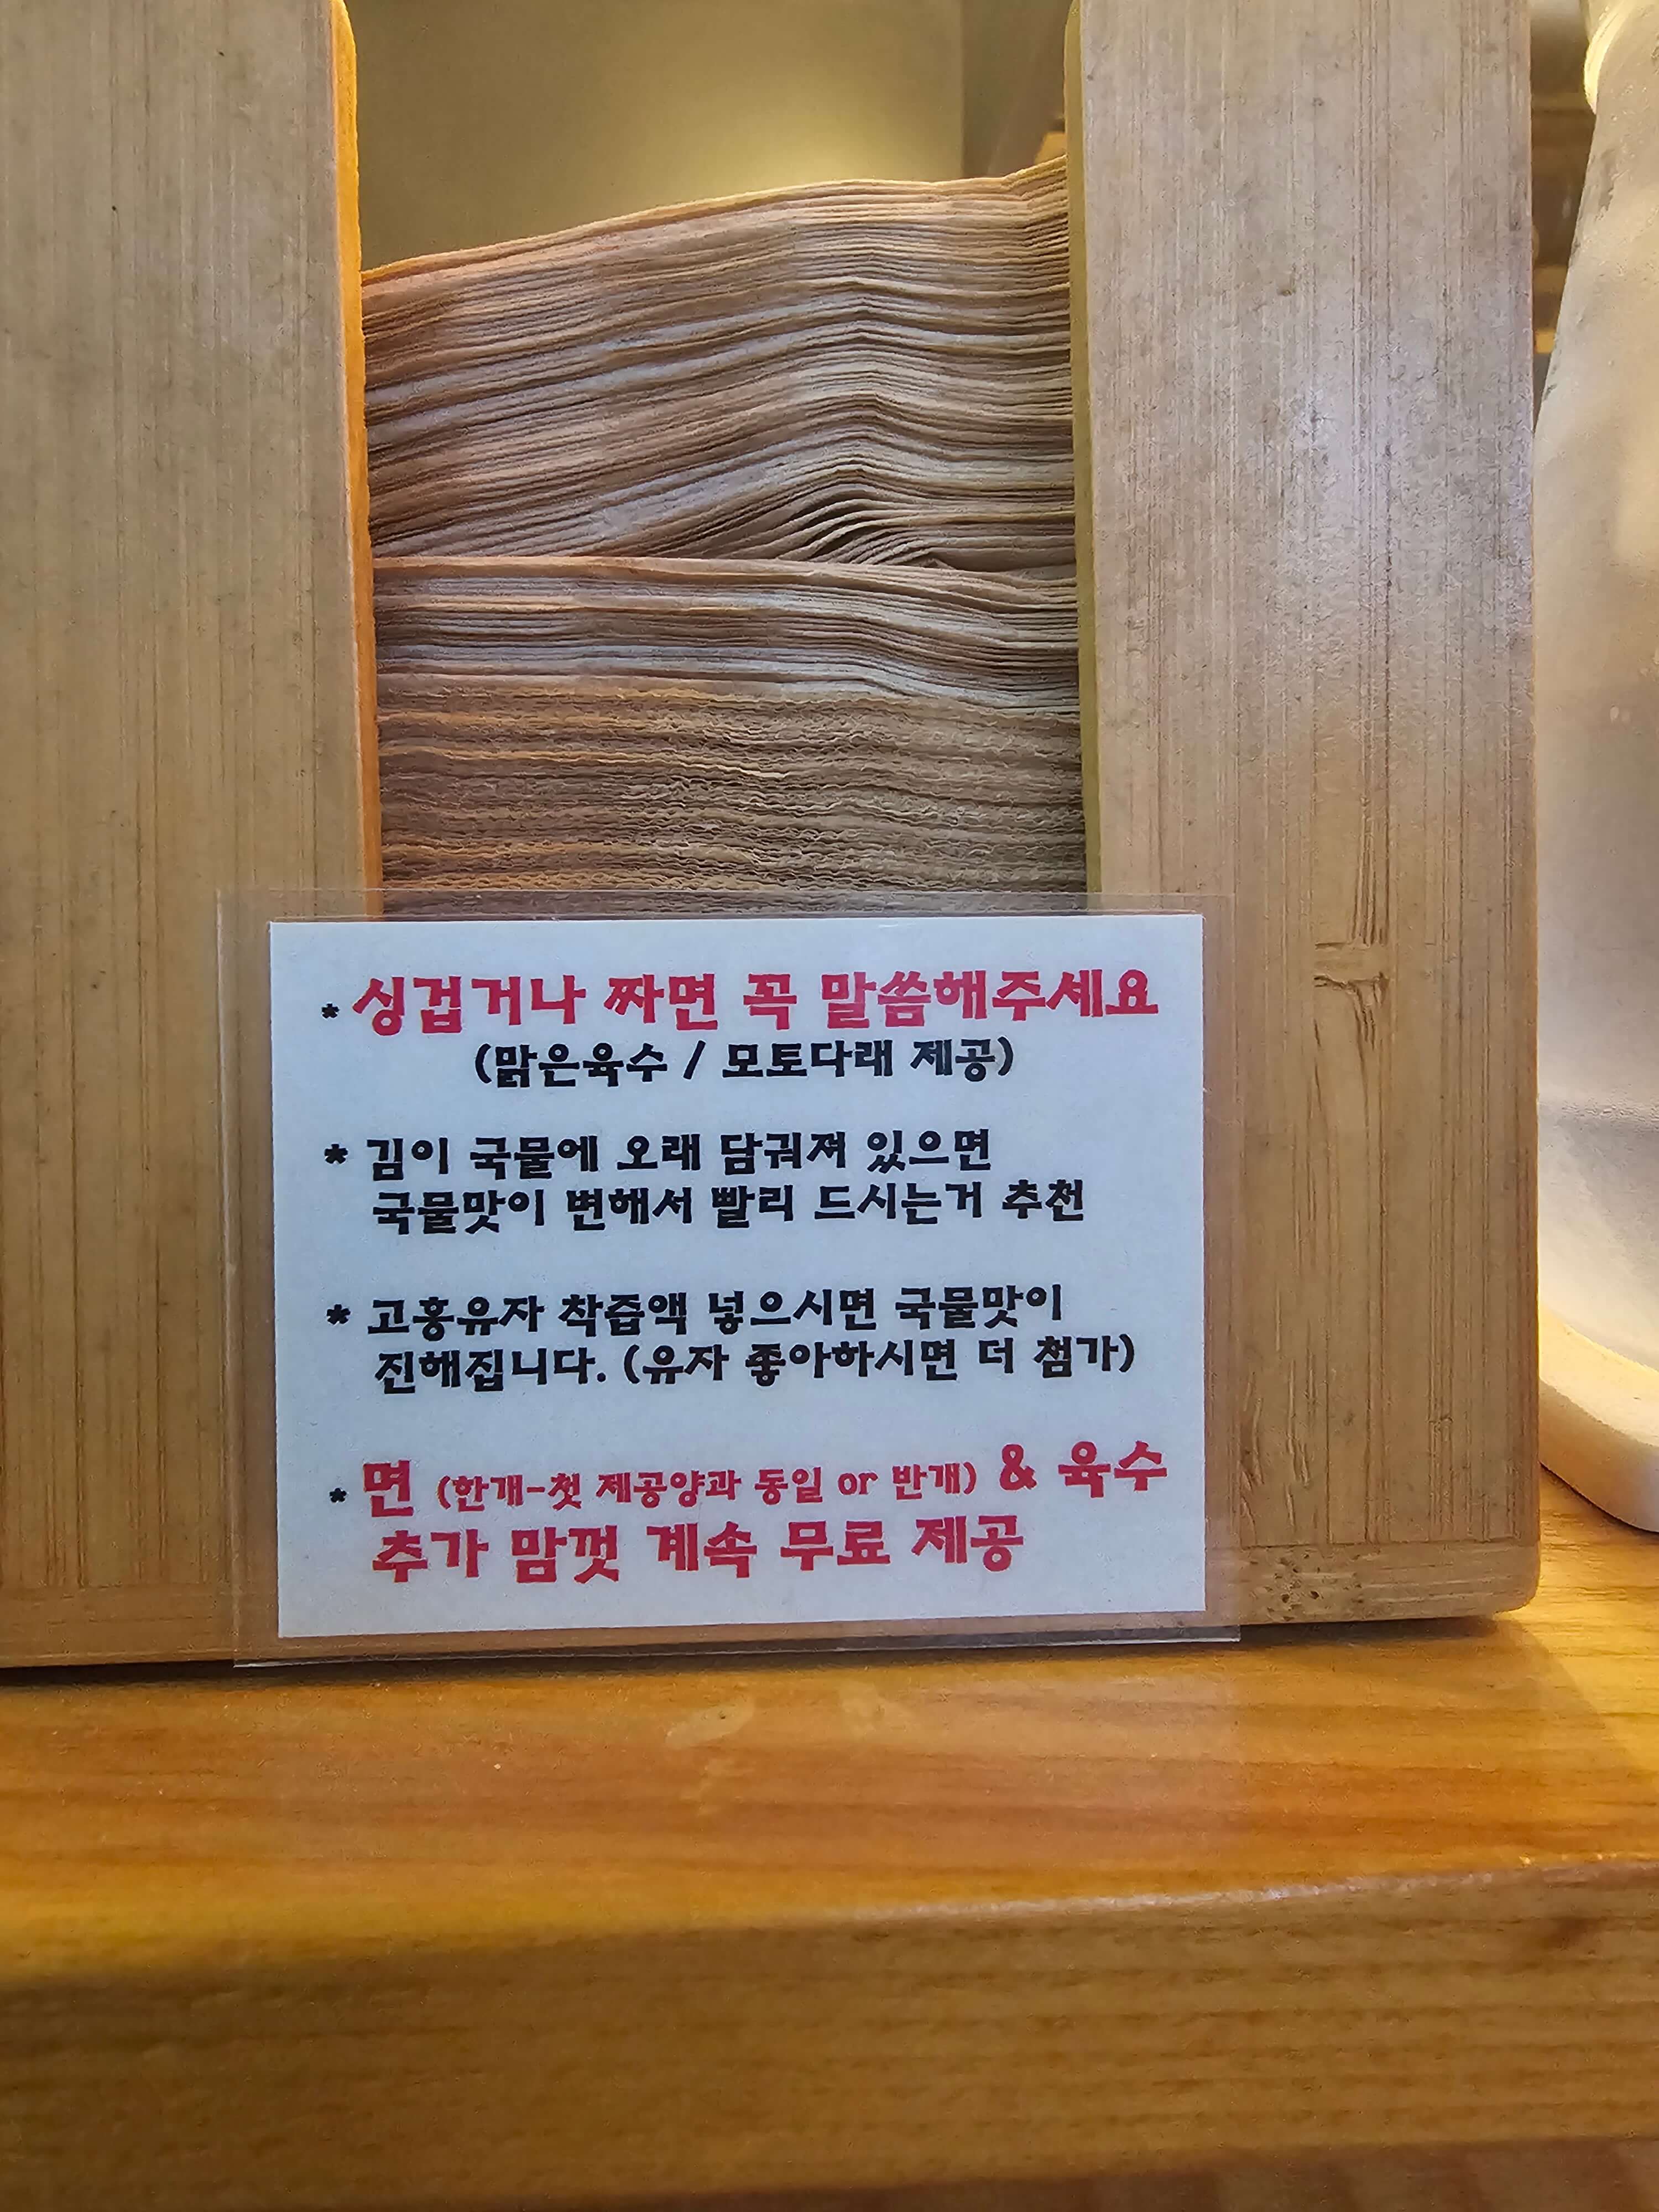 * 싱겁거나 짜면 꼭 말씀해주세요
(맑은육수 / 모토다래 제공)
* 김이 국물에 오래 담궈져 있으면
국물맛이 변해서 빨리 드시는거 추천
* 고흥유자 착즙액 넣으시면 국물맛이
진해집니다. (유자 좋아하시면 더 첨가)
* 면 (한개-첫 제공양과 동일 or 반개) & 육수
추가 맘껏 계속 무료 제공